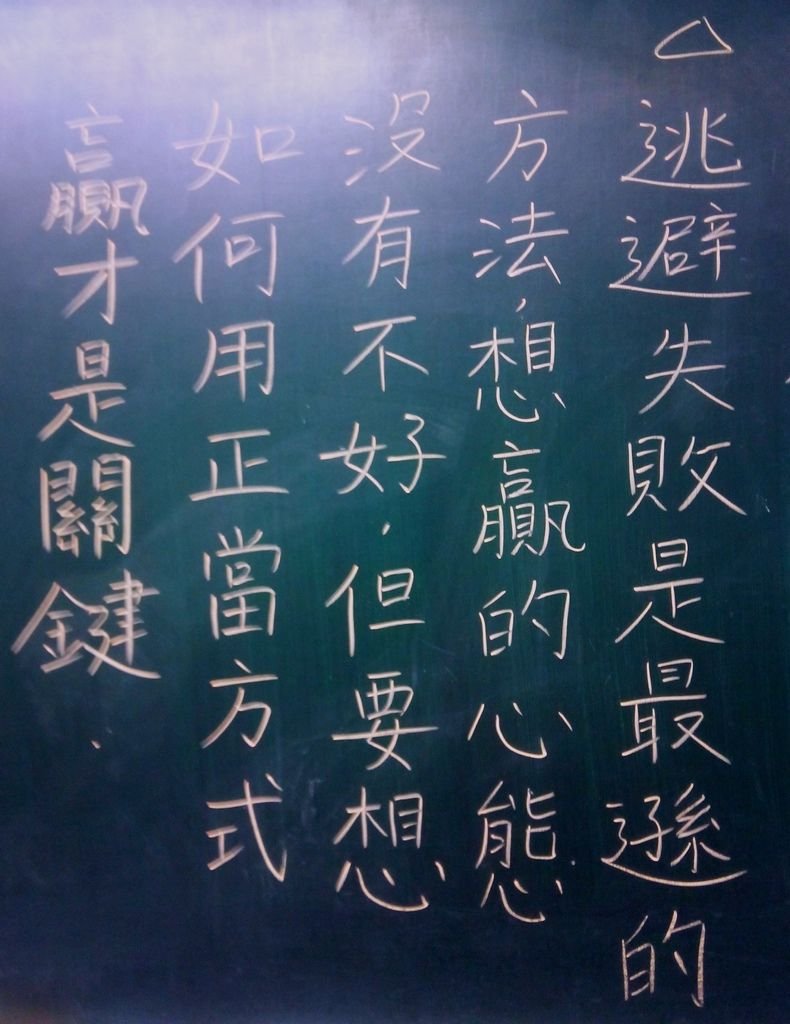 △逃避失敗是最遜的
方法,想贏的心態
沒有不好,但要想
如何用正當方式
贏才是關鍵.